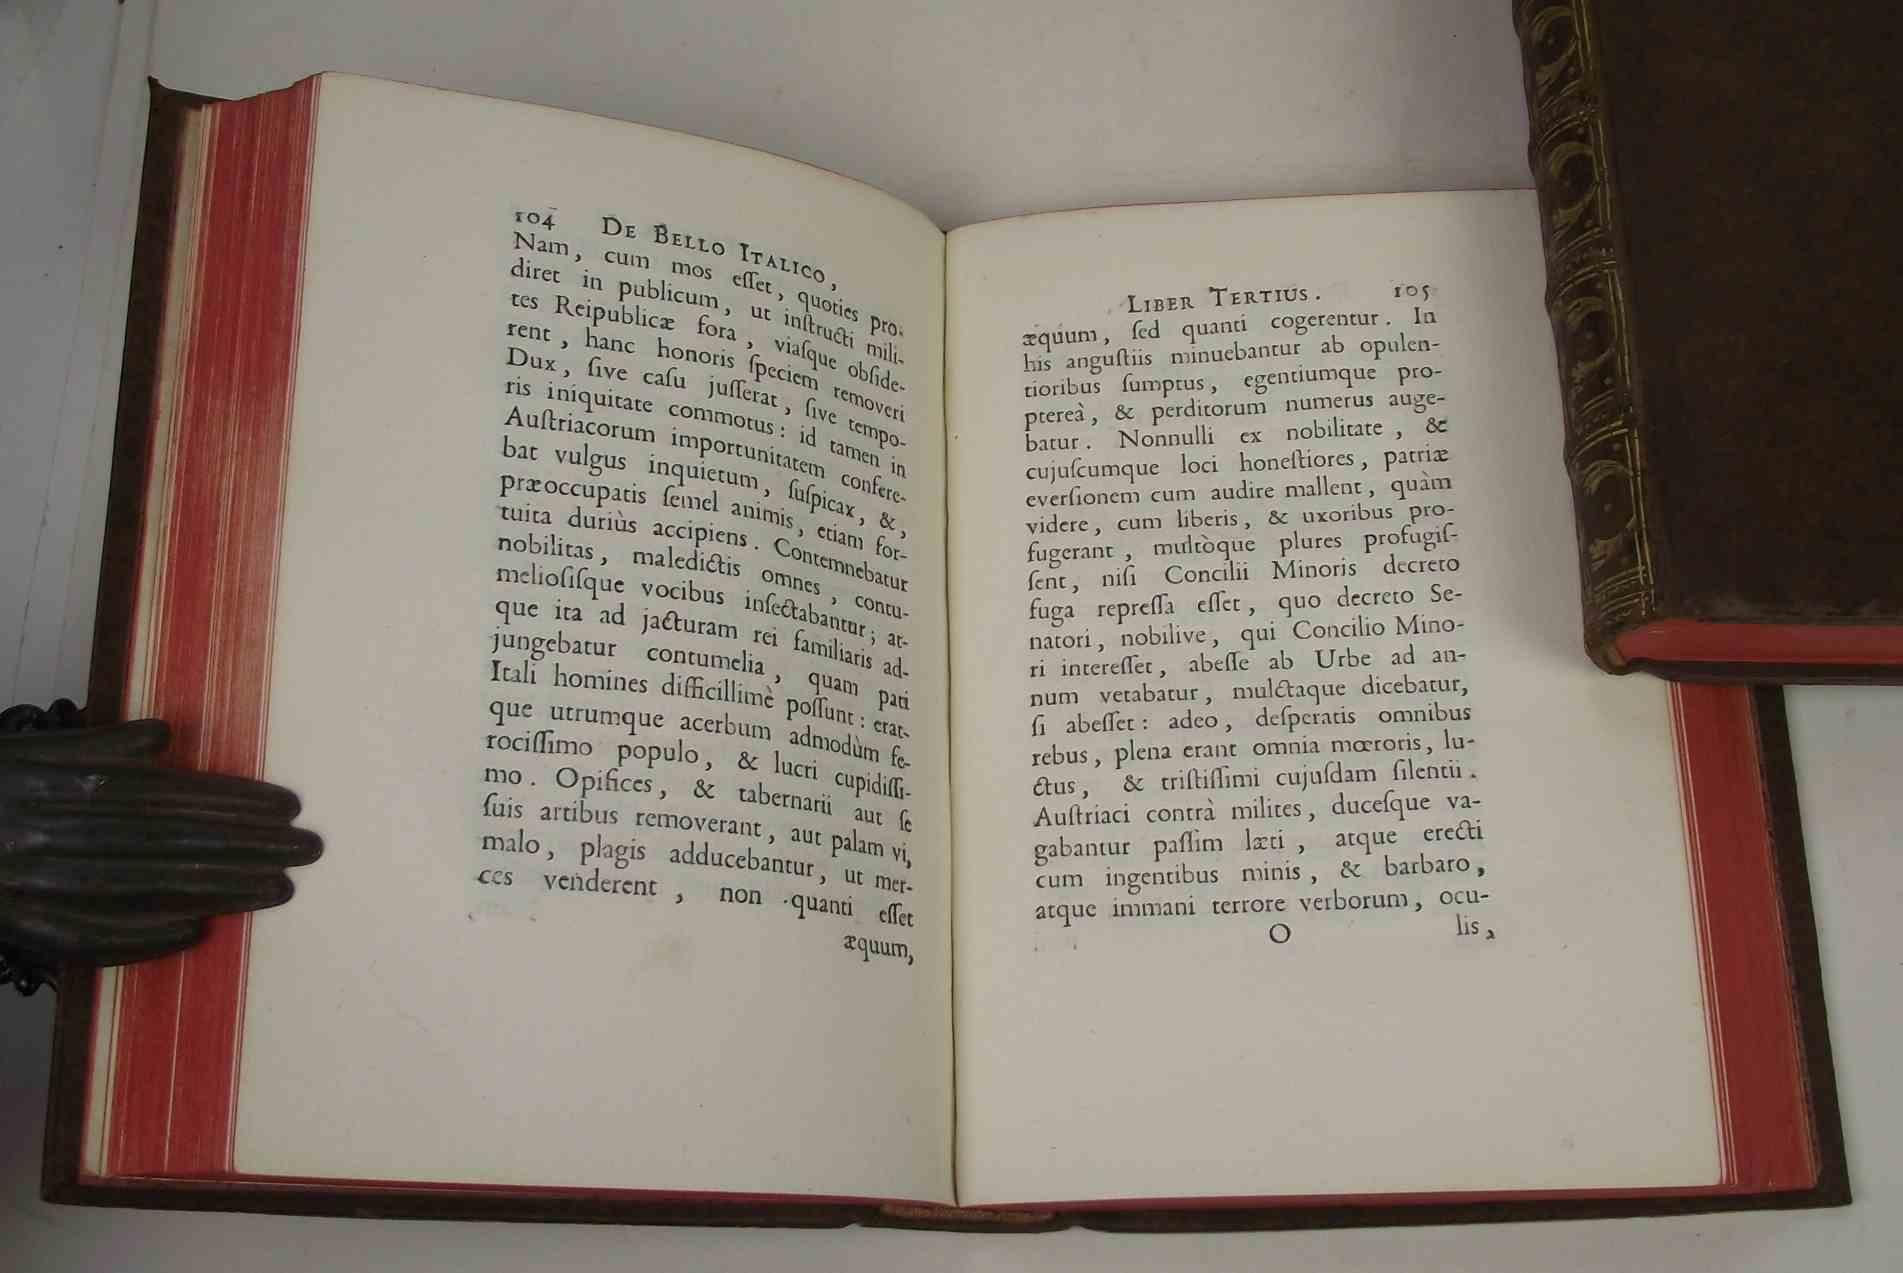 104 DE BELLO ITALICO,
Nam, cum mos eſſet, quoties pro-
diret in publicum, ut inſtructi mili-
tes Reipublicæ fora, viaſque obſide-
rent, hanc honoris ſpeciem removeri
Dux, ſive caſu juſſerat, ſive tempo-
ris iniquitate commotus: id tamen in
Auſtriacorum importunitatem confere-
bat vulgus inquietum, ſuſpicax, &,
præoccupatis ſemel animis, etiam for-
tuita duriùs accipiens. Contemnebatur
nobilitas, maledictis omnes, contu-
melioſiſque vocibus inſectabantur; at-
que ita ad jacturam rei familiaris ad-
jungebatur contumelia, quam pati
Itali homines difficillimè poſſunt: erat-
que utrumque acerbum admodùm fe-
rociſſimo populo, & lucri cupidiſſi-
mo. Opifices, & tabernarii aut ſe
ſuis artibus removerant, aut palam vi,
malo, plagis adducebantur, ut mer-
ces venderent, non quanti eſſet
æquum,
LIBER TERTIUS. 105
æquum, ſed quanti cogerentur. In
his anguſtiis minuebantur ab opulen-
tioribus ſumptus, egentiumque pro-
ptereà, & perditorum numerus auge-
batur. Nonnulli ex nobilitate, &
cujuſcumque loci honeſtiores, patriæ
everſionem cum audire mallent, quàm
videre, cum liberis, & uxoribus pro-
fugerant, multòque plures profugiſ-
ſent, niſi Concilii Minoris decreto
fuga repreſſa eſſet, quo decreto Se-
natori, nobilive, qui Concilio Mino-
ri intereſſet, abeſſe ab Urbe ad an-
num vetabatur, mulctaque dicebatur,
ſi abeſſet: adeo, deſperatis omnibus
rebus, plena erant omnia mœroris, lu-
ctus, & triſtiſſimi cujuſdam ſilentii.
Auſtriaci contrà milites, duceſque va-
gabantur paſſim læti, atque erecti
cum ingentibus minis, & barbaro,
atque immani terrore verborum, ocu-
O lis,